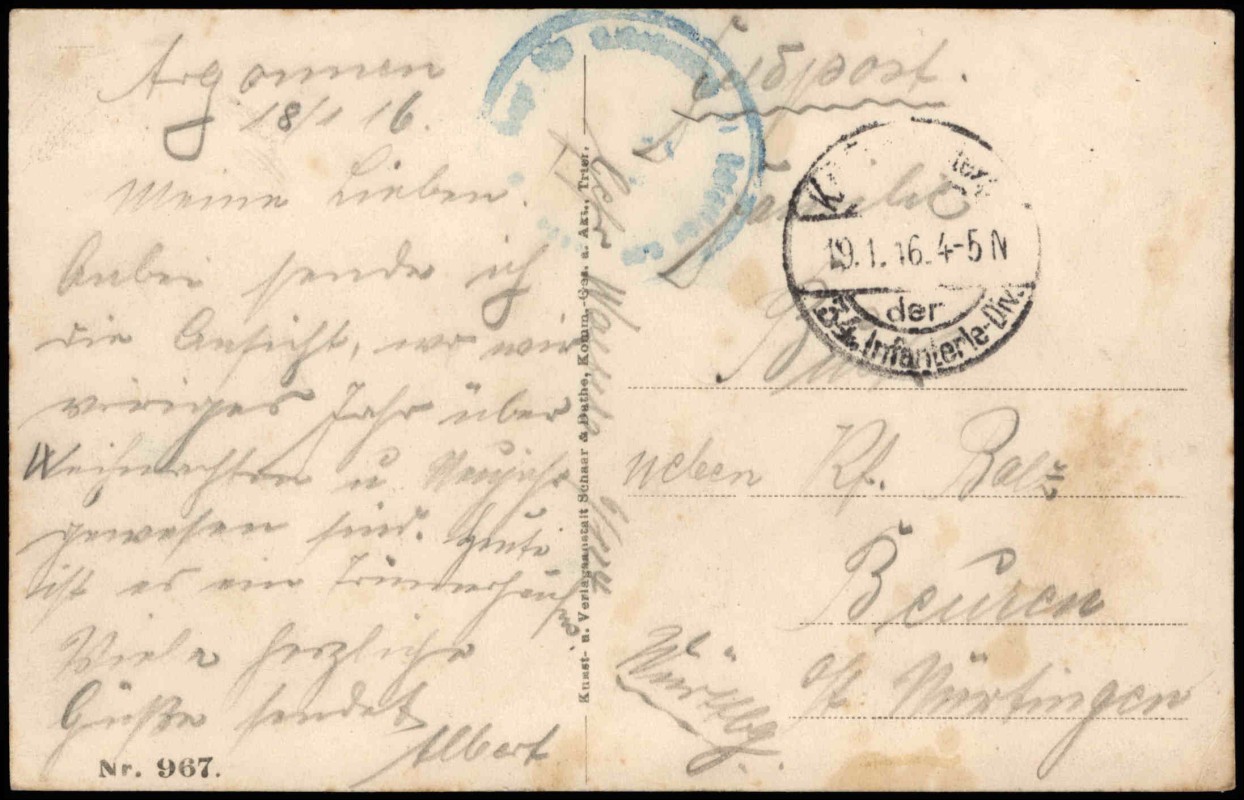 Argonnen
18/1 16.
Meine Lieben.
Anbei sende ich
die Ansicht, wo wir
voriges Jahr über
Weihnachten u Neujahr
gewesen sind. Heute
ist es ein Trümmerhaufen
Viele herzliche
Grüße sendet
Albert
Nr. 967.
Kunst- u. Verlagsanstalt Schaar & Dathe, Komm.-Ges. a. Akt., Trier.
Feldpost.
Familie
K
19.1.16.4-5N
der
54. Infanterie-Div.
neben Kf. Balz
Beuren
o/ Nürtingen
Württbg.